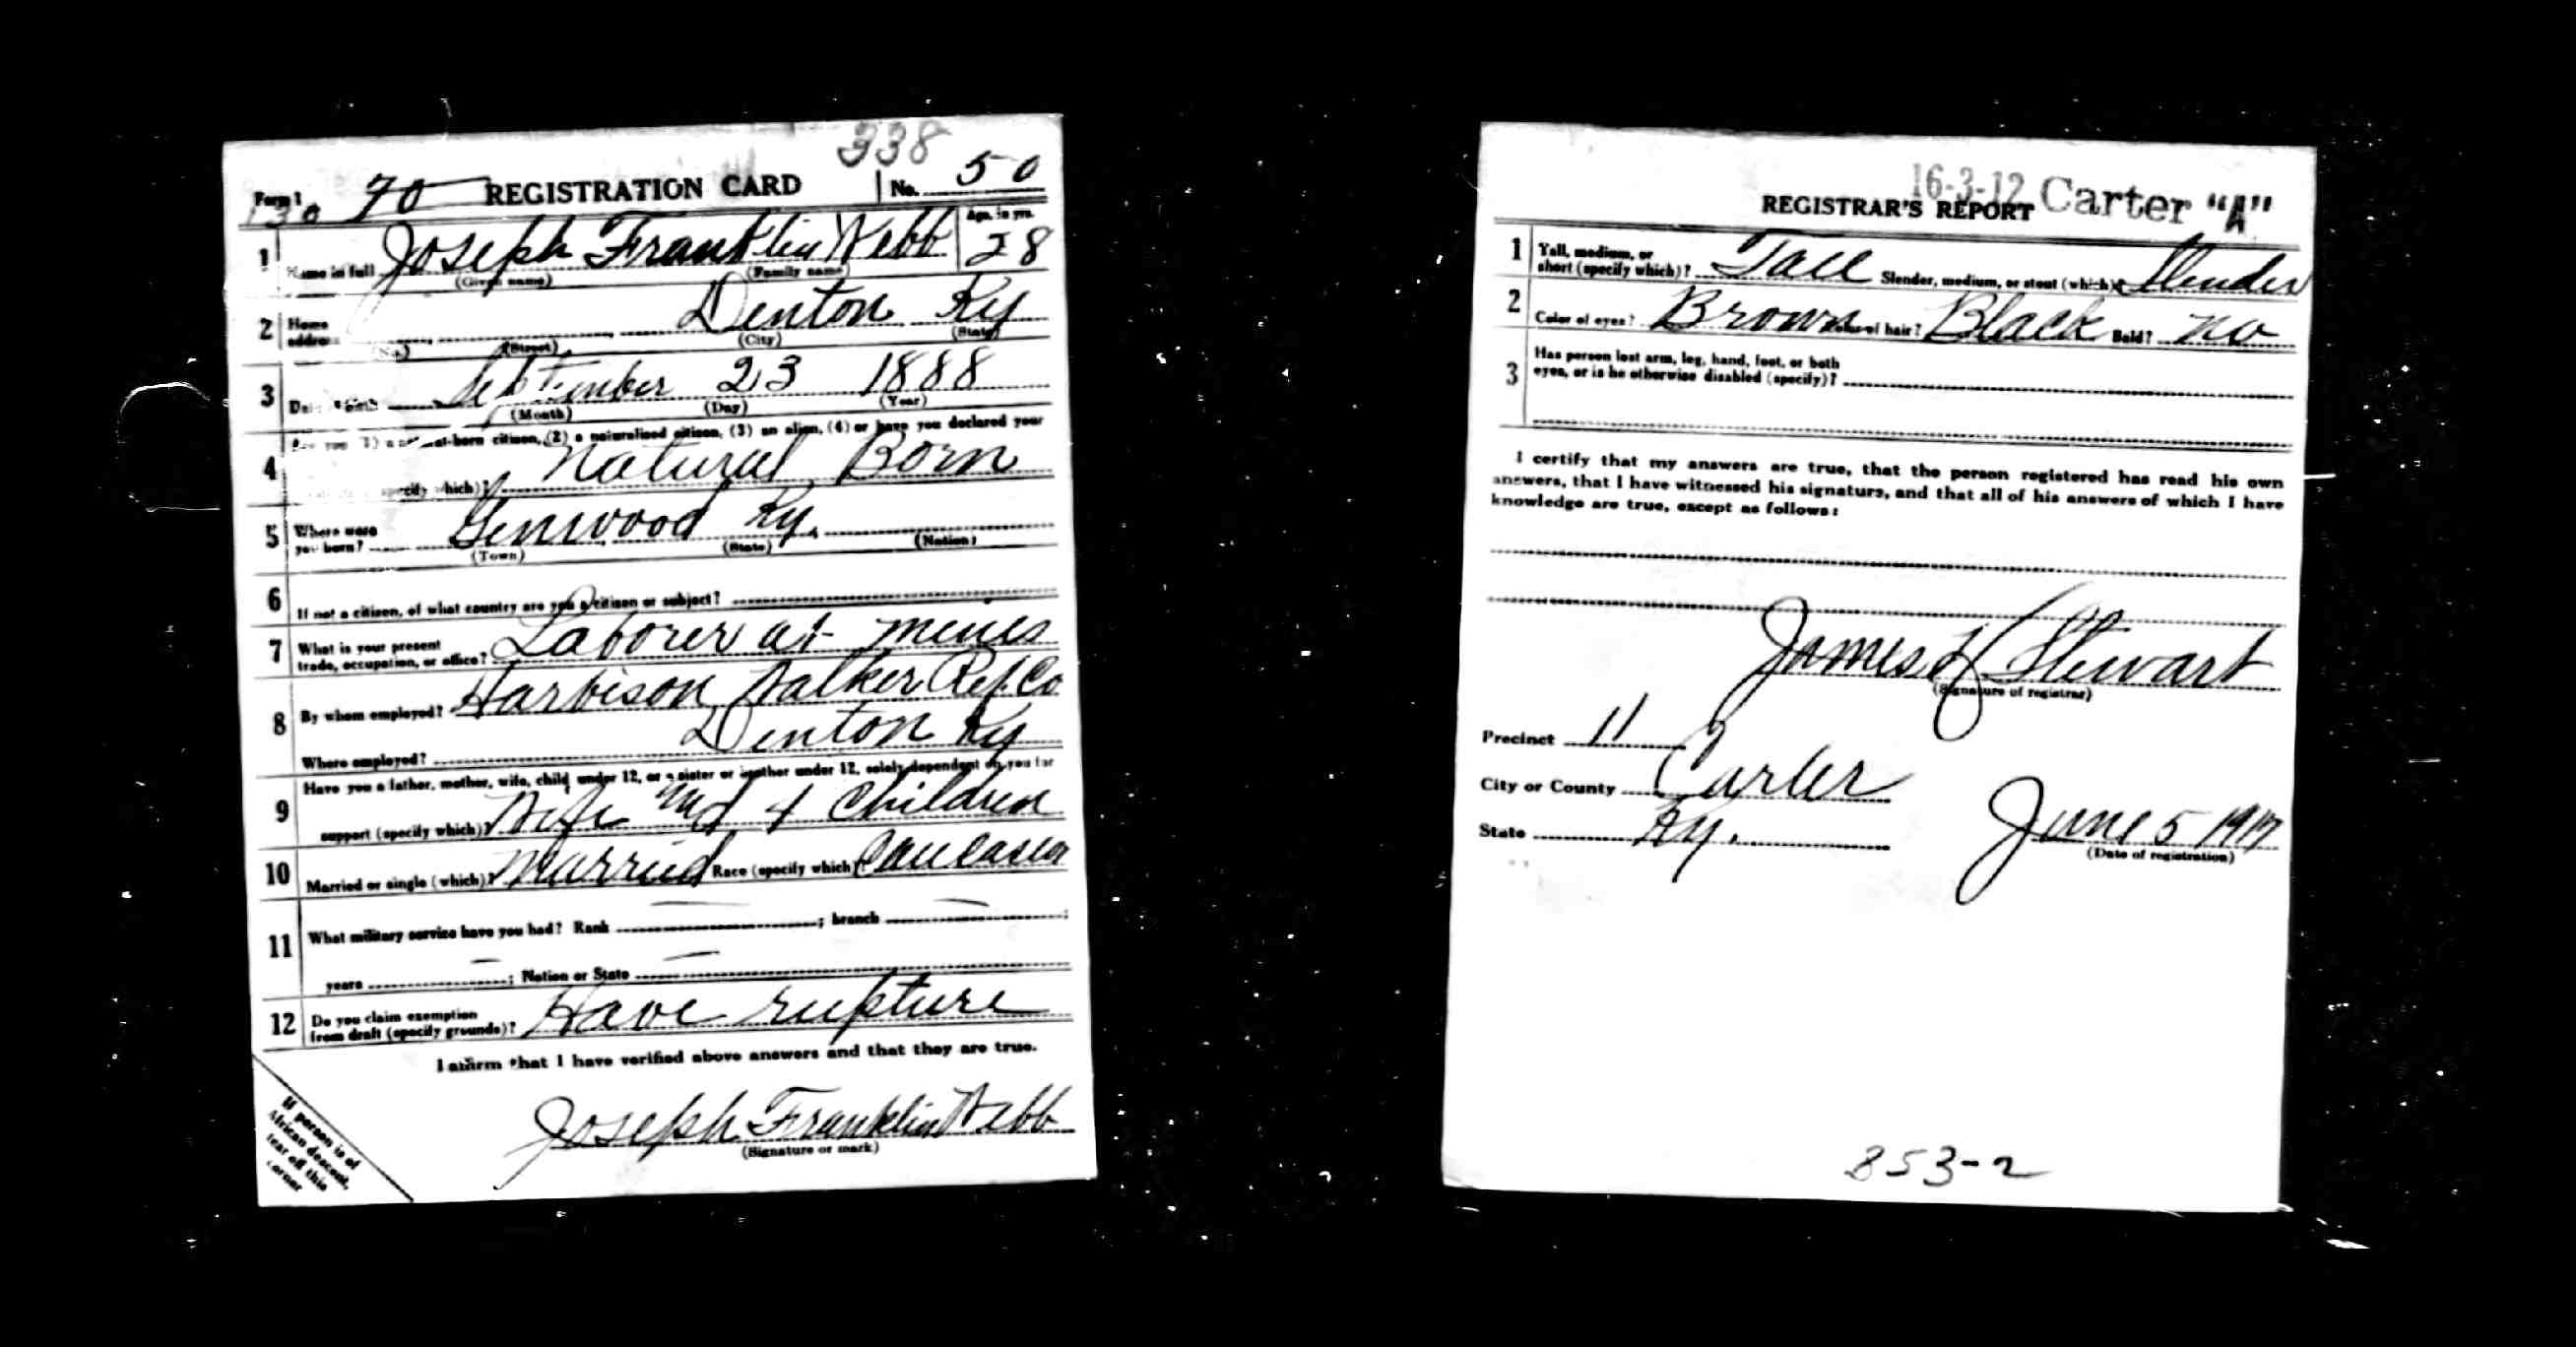 338
Form 1 130 70 REGISTRATION CARD No. 50
1 Name in full Joseph Franklin Webb Age, in yrs. 28
(Given name) (Family name)
2 Home address Denton Ky
(No.) (Street) (City) (State)
3 Date of birth September 23 1888
(Month) (Day) (Year)
4 Are you (1) a natural-born citizen, (2) a naturalized citizen, (3) an alien, (4) or have you declared your
(specify which)? Natural Born
5 Where were you born? Genwood Ky.
(Town) (State) (Nation)
6 If not a citizen, of what country are you a citizen or subject?
7 What is your present trade, occupation, or office? Laborer at mines
8 By whom employed? Harbison Walker Ref. Co
Where employed? Denton Ky
9 Have you a father, mother, wife, child under 12, or a sister or brother under 12, solely dependent on you for
support (specify which)? Wife and 4 Children
10 Married or single (which)? Married Race (specify which)? Caucasian
11 What military service have you had? Rank — ; branch — ;
years — ; Nation or State —
12 Do you claim exemption from draft (specify grounds)? Have rupture
I affirm that I have verified above answers and that they are true.
Joseph Franklin Webb
(Signature or mark)
If person is of
African descent,
tear off this
corner
16-3-12 Carter "A"
REGISTRAR'S REPORT
1 Tall, medium, or short (specify which)? Tall Slender, medium, or stout (which)? Slender
2 Color of eyes? Brown Color of hair? Black Bald? no
3 Has person lost arm, leg, hand, foot, or both
eyes, or is he otherwise disabled (specify)?
I certify that my answers are true, that the person registered has read his own
answers, that I have witnessed his signature, and that all of his answers of which I have
knowledge are true, except as follows:
James H Stewart
(Signature of registrar)
Precinct 11
City or County Carter
State Ky. June 5 1917
(Date of registration)
853-2